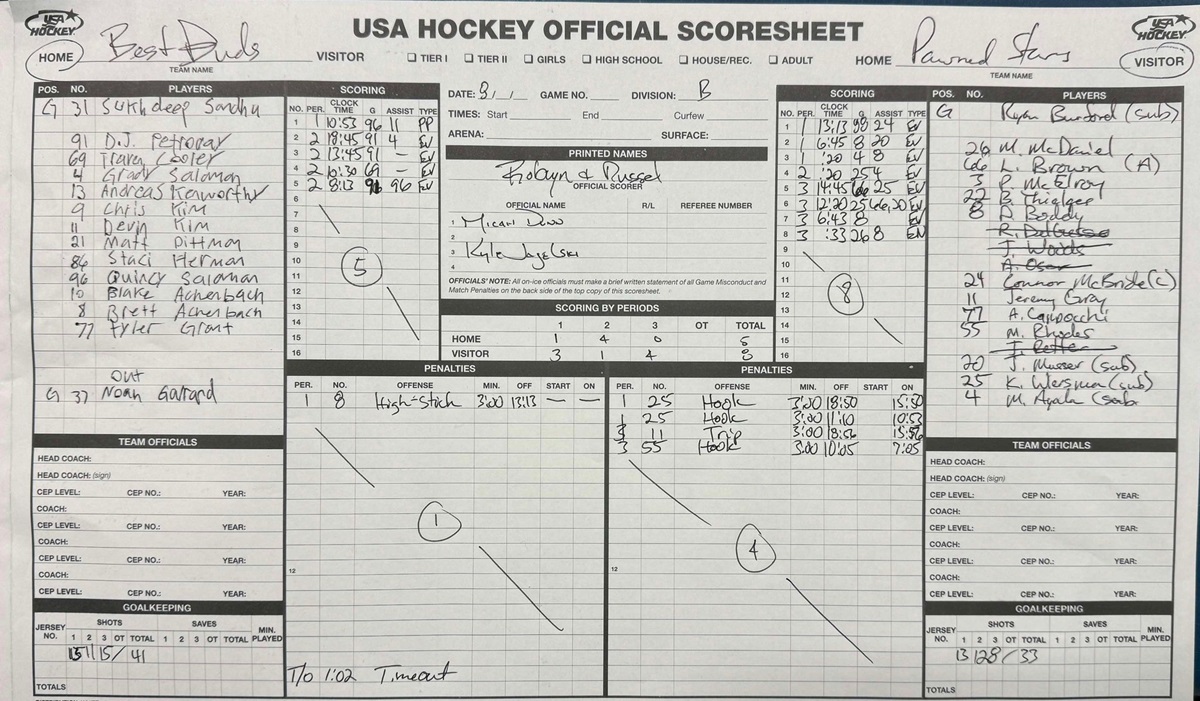 USA HOCKEY
USA HOCKEY OFFICIAL SCORESHEET
USA HOCKEY
HOME Best Duds VISITOR
TEAM NAME
☐ TIER I ☐ TIER II ☐ GIRLS ☐ HIGH SCHOOL ☐ HOUSE/REC. ☐ ADULT
HOME Pawned Stars VISITOR
TEAM NAME
POS. NO. PLAYERS
G 31 Sukhdeep Sandhu
91 D.J. Petroray
69 Travey Cooler
4 Grady Salomon
13 Andreas Kenworthy
9 Chris Kim
11 Devin Kim
21 Matt Pittman
86 Staci Herman
96 Quincy Salomon
10 Blake Achenbach
8 Brett Achenbach
77 Tyler Grant
Out
G 37 Noah Garrard
SCORING
NO. PER. CLOCK TIME G ASSIST TYPE
1 1 10:53 96 11 PP
2 2 18:45 91 4 EV
3 2 13:45 91 – EV
4 2 10:30 69 – EV
5 2 8:13 96 EV
6
7
8
9
10
11
12
13
14
15
16
5
DATE: GAME NO. DIVISION: B
TIMES: Start End Curfew
ARENA: SURFACE:
PRINTED NAMES
Robyn & Russel
OFFICIAL SCORER
OFFICIAL NAME R/L REFEREE NUMBER
1 Micah
2
3 Kyle
4
OFFICIALS' NOTE: All on-ice officials must make a brief written statement of all Game Misconduct and
Match Penalties on the back side of the top copy of this scoresheet.
SCORING BY PERIODS
1 2 3 OT TOTAL
HOME 1 4 0 5
VISITOR 3 1 4 8
SCORING
NO. PER. CLOCK TIME G ASSIST TYPE
1 1 13:13 98 24 EV
2 1 6:45 8 20 EV
3 1 :20 4 8 EV
4 2 :20 25 4 EV
5 3 14:45 66 25 EV
6 3 12:20 25 66,20 EV
7 3 6:43 8 EV
8 3 :33 26 8 EN
9
10
11
12
13
14
15
16
8
POS. NO. PLAYERS
G Ryan Burford (sub)
26 M. McDaniel
66 L. Brown (A)
3 P. McElroy
22 B. Thielgee
8 D. Boddy
R. DelGrosso
J. Woods
A. Oser
24 Connor McBride (C)
11 Jeremy Gray
77 A. Carpocchi
55 M. Rhodes
T. Retter
20 J. Musser (sub)
25 K. Wersman (sub)
4 M. Ayala (sub
PENALTIES
PER. NO. OFFENSE MIN. OFF START ON
1 8 High-Stick 3:00 13:13 – –
12
1
T/O 1:02 Timeout
PENALTIES
PER. NO. OFFENSE MIN. OFF START ON
1 25 Hook 3:00 18:50 15:50
1 25 Hook 3:00 11:10 10:53
3 11 Trip 3:00 18:56 15:56
3 55 Hook 3:00 10:05 7:05
12
4
TEAM OFFICIALS
HEAD COACH:
HEAD COACH: (sign)
CEP LEVEL: CEP NO.: YEAR:
COACH:
CEP LEVEL: CEP NO.: YEAR:
COACH:
CEP LEVEL: CEP NO.: YEAR:
COACH:
CEP LEVEL: CEP NO.: YEAR:
GOALKEEPING
JERSEY NO. SHOTS SAVES MIN. PLAYED
1 2 3 OT TOTAL 1 2 3 OT TOTAL
15 11 15 / 41
TOTALS
TEAM OFFICIALS
HEAD COACH:
HEAD COACH: (sign)
CEP LEVEL: CEP NO.: YEAR:
COACH:
CEP LEVEL: CEP NO.: YEAR:
COACH:
CEP LEVEL: CEP NO.: YEAR:
COACH:
CEP LEVEL: CEP NO.: YEAR:
GOALKEEPING
JERSEY NO. SHOTS SAVES MIN. PLAYED
1 2 3 OT TOTAL 1 2 3 OT TOTAL
13 12 8 / 33
TOTALS